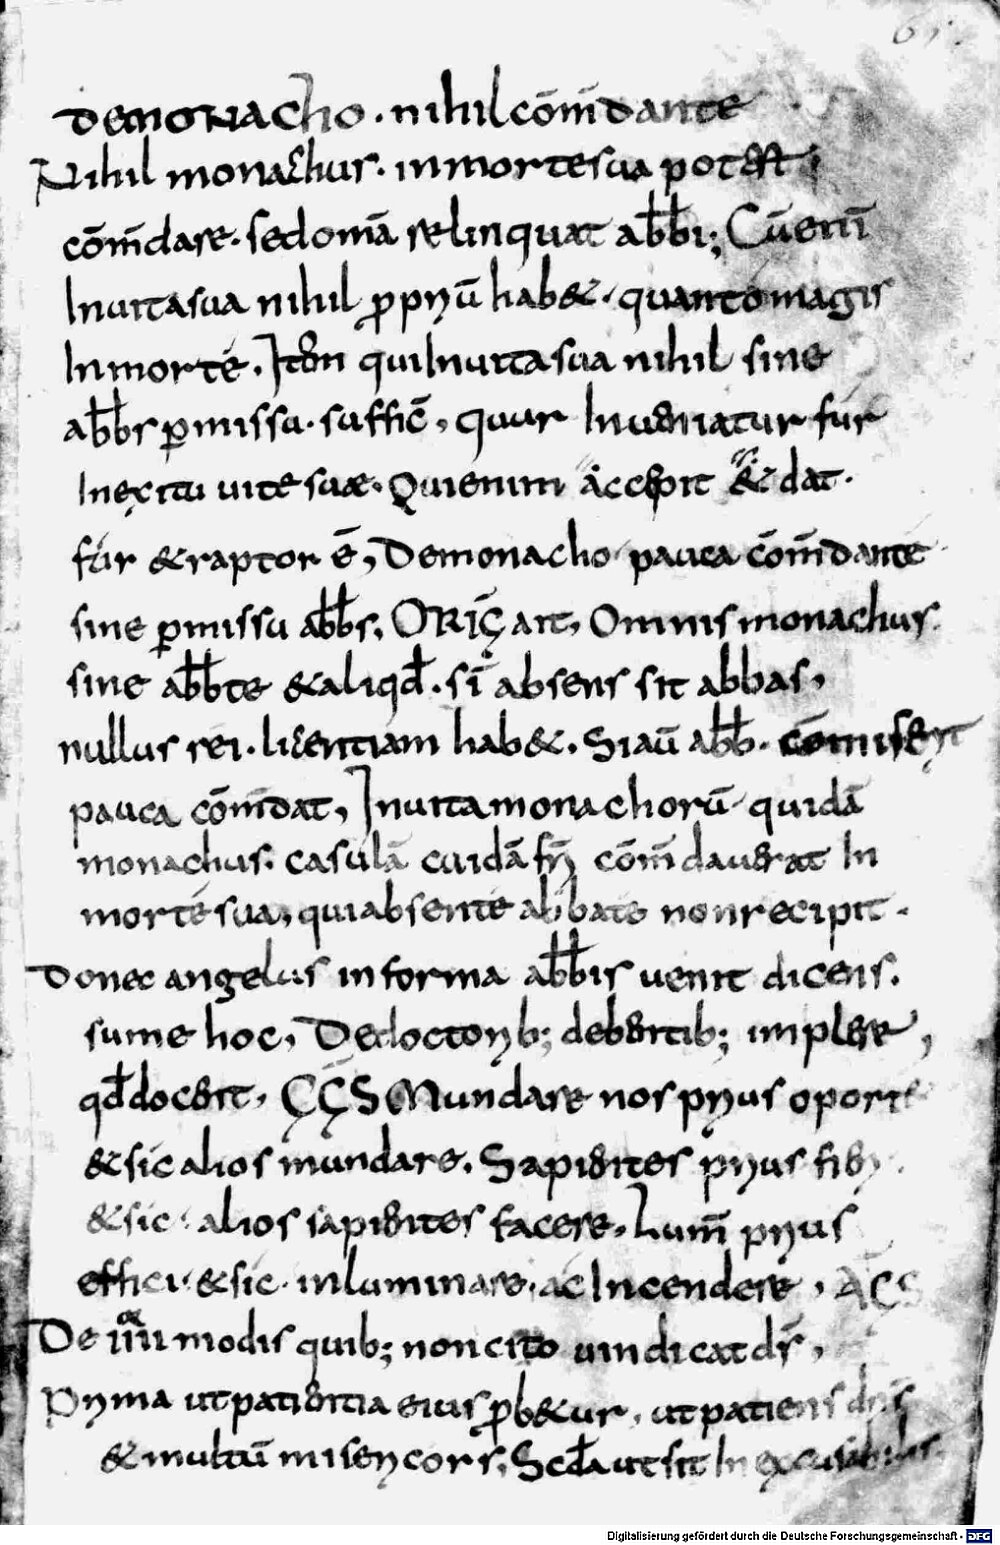 De monacho. nihil cōm̄dante
Nihil monachus. in morte sua potest;
cōm̄dare. sed omā relinquat ab̄bi; Cū eni
In uita sua nihil ꝓpriū hab&. quanto magis
In morte. Item qui In uita sua nihil sine
ab̄bs ꝑmissu. suffic̄, quur Inueniatur fur
In exitu uite suae. Qui enim accepit & dat.
fur & raptor ē, De monacho pauca cōm̄dante
sine ꝑmissu ab̄bs, ORIḠ ait, Omnis monachus.
sine ab̄bte & aliqd̄. sī absens sit abbas,
nullus rei. licentiam hab&. Si aū ab̄b. cōmiserit
pauca cōm̄dat, In uita monachorū quidā
monachus. casulā cuidā fr̄i cōm̄dauerat In
morte sua, qui absente abbate non recipit.
Donec angelus in forma ab̄bis uenit dicens.
sume hoc, De doctorib; debentib; implere,
qd̄ docent, ḠḠS Mundare nos prius oport
& sic alios mundare. Sapientes prius fieri
& sic. alios sapientes facere. Lum̄ prius
effici. & sic. inluminare. ac Incendere, AGS
De iiii modis quib; non cito uindicat ds̄,
Prima ut patientia eius ꝓb&ur, ut patiens dn̄s
& multū misericors, Scd̄a ut sit In excusabilis.
Digitalisierung gefördert durch die Deutsche Forschungsgemeinschaft - DFG